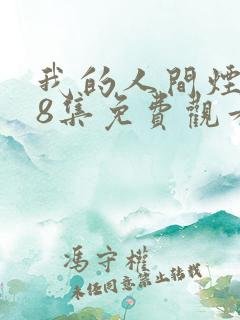 我的人間煙
8集免費觀看
馮守權
未任同意禁止转载